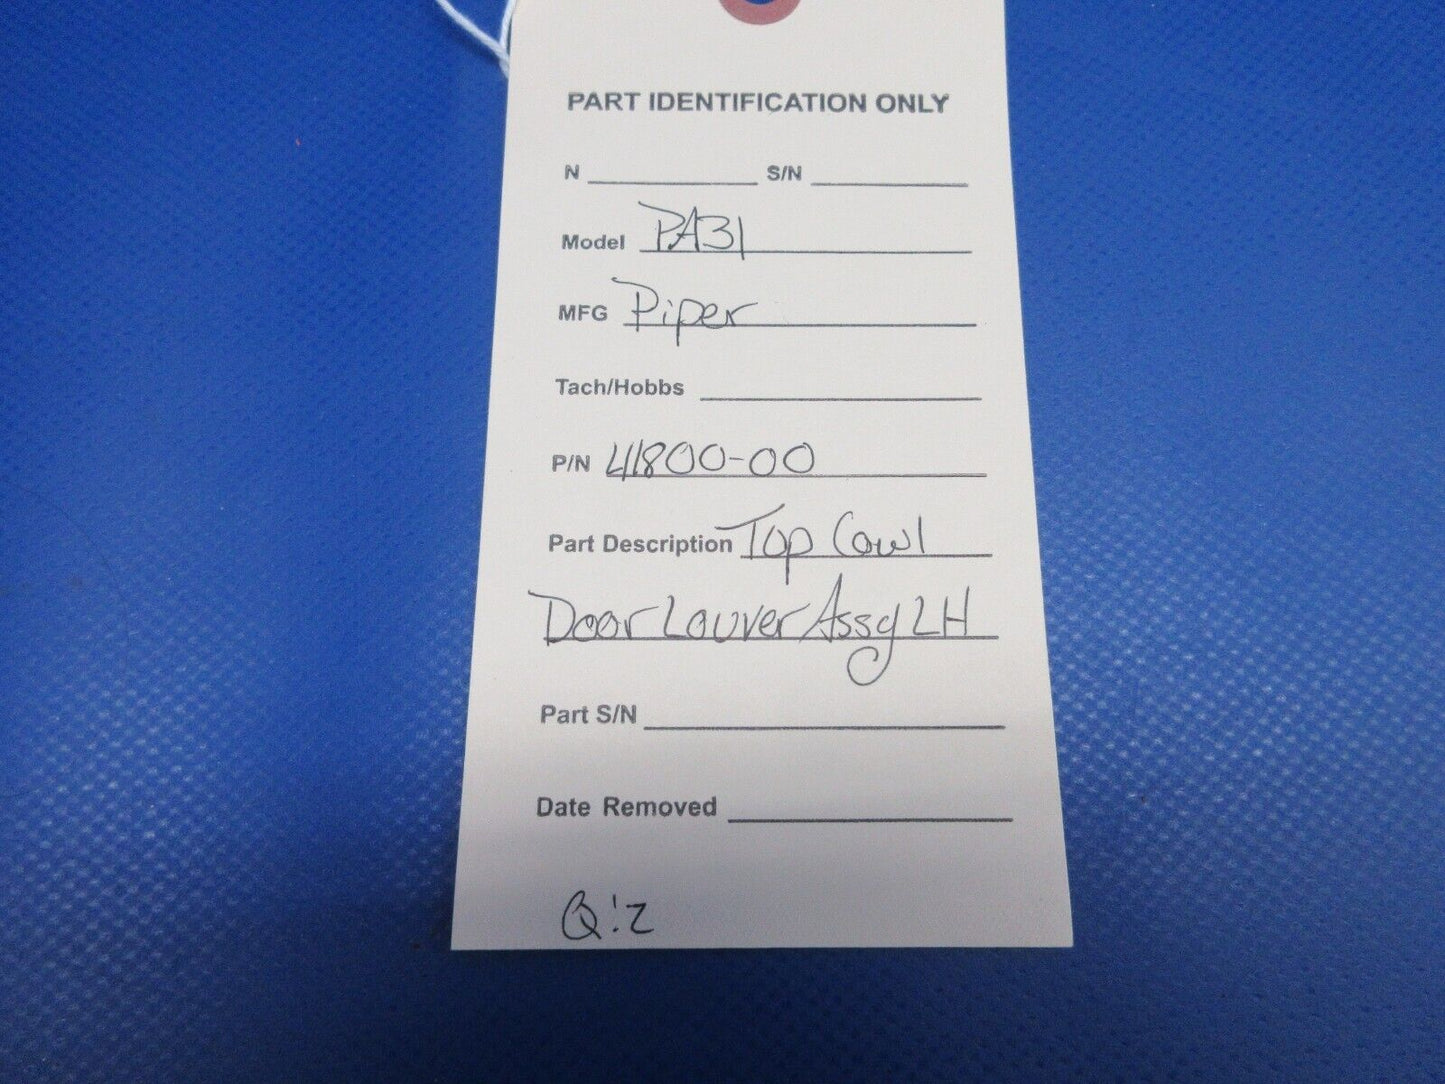 PART IDENTIFICATION ONLY
N S/N
Model PA31
MFG Piper
Tach/Hobbs
P/N 41800-00
Part Description Top Cowl
Door Louver Assy LH
Part S/N
Date Removed
Q:2